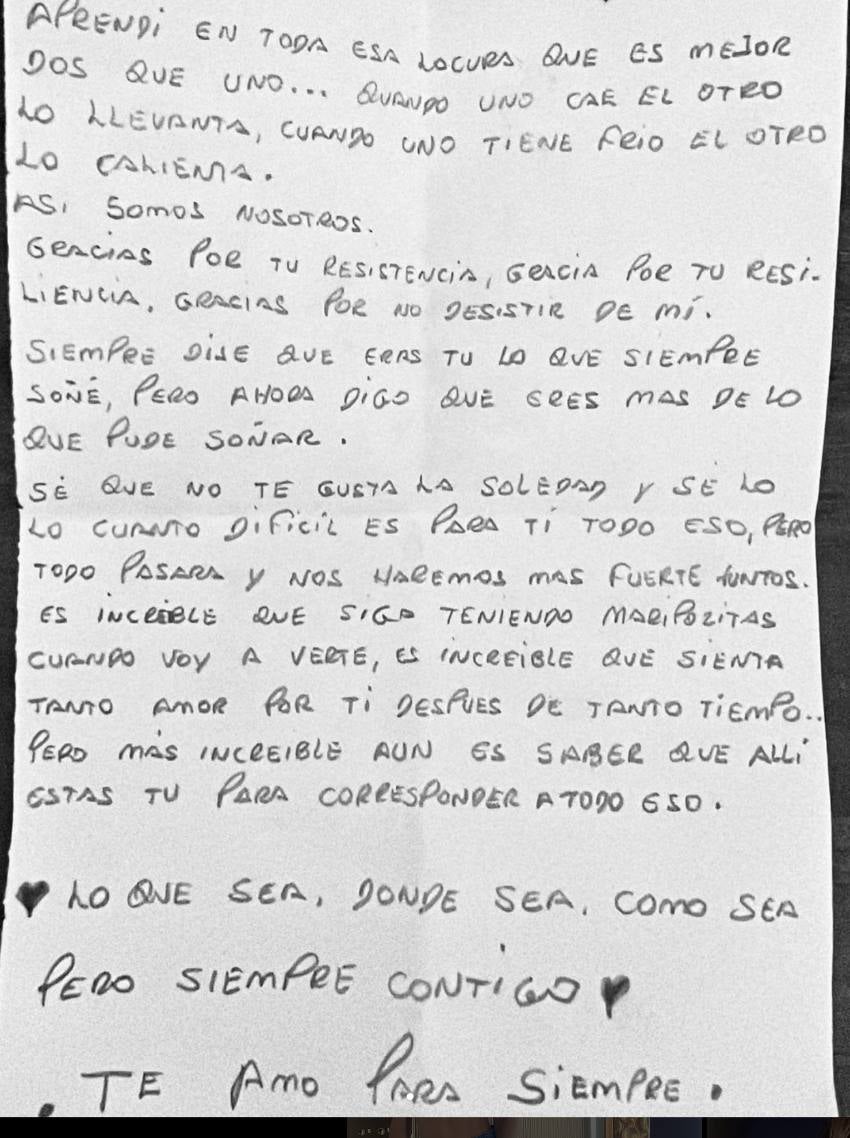 APRENDi EN TODA ESA LOCURA QUE ES MEJOR
DOS QUE UNO... QUANDO UNO CAE EL OTRO
LO LLEVANTA, CUANDO UNO TIENE FRIO EL OTRO
LO CALIENTA.
ASi SOMOS NOSOTROS.
GRACIAS POR TU RESISTENCIA, GRACIA POR TU RESI-
LIENCIA, GRACIAS POR NO DESISTIR DE MÍ.
SIEMPRE DIJE QUE ERAS TU LO QUE SIEMPRE
SOÑÉ, PERO AHORA DIGO QUE ERES MAS DE LO
QUE PUDE SOÑAR.
SÉ QUE NO TE GUSTA LA SOLEDAD Y SÉ LO
LO CUANTO DIFICIL ES PARA TI TODO ESO, PERO
TODO PASARA Y NOS HAREMOS MAS FUERTE JUNTOS.
ES INCREIBLE QUE SIGA TENIENDO MARIPOZITAS
CUANDO VOY A VERTE, ES INCREIBLE QUE SIENTA
TANTO AMOR POR TI DESPUES DE TANTO TIEMPO..
PERO MÁS INCREIBLE AUN ES SABER QUE ALLÍ
ESTAS TU PARA CORRESPONDER A TODO ESO.
♥ LO QUE SEA, DONDE SEA, COMO SEA
PERO SIEMPRE CONTIGO ♥
. TE AMO PARA SIEMPRE.